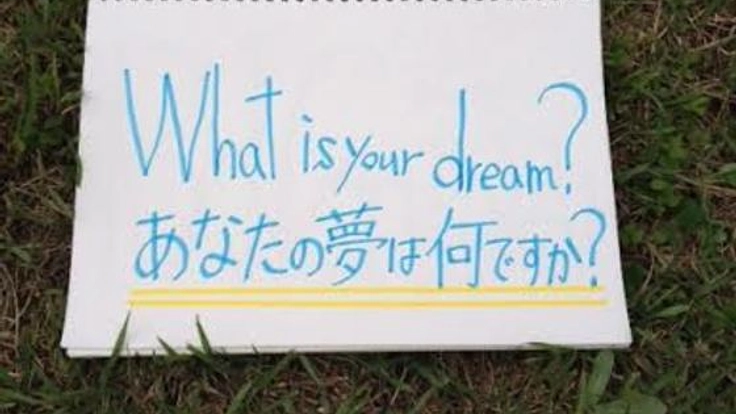 What is your dream?
あなたの夢は何ですか?